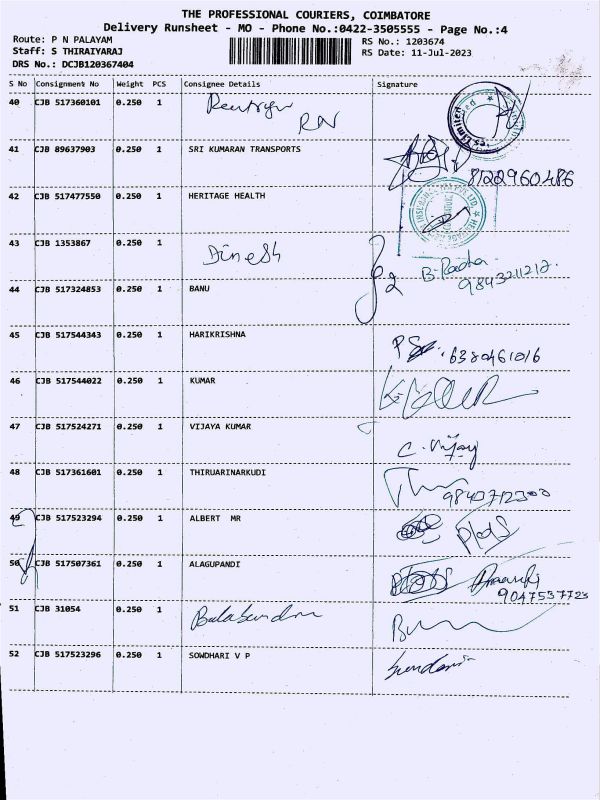 THE PROFESSIONAL COURIERS, COIMBATORE
Delivery Runsheet - MO - Phone No.:0422-3505555 - Page No.:4
Route: P N PALAYAM
Staff: S THIRAIYARAJ
DRS No.: DCJB120367404
RS No.: 1203674
RS Date: 11-Jul-2023
S No Consignment No Weight PCS Consignee Details Signature
40 CJB 517360101 0.250 1 RN
41 CJB 89637903 0.250 1 SRI KUMARAN TRANSPORTS 8122960486
42 CJB 517477550 0.250 1 HERITAGE HEALTH
43 CJB 1353867 0.250 1 Dinesh B. Radha
9843211212
44 CJB 517324853 0.250 1 BANU
45 CJB 517544343 0.250 1 HARIKRISHNA 6380461016
46 CJB 517544022 0.250 1 KUMAR
47 CJB 517524271 0.250 1 VIJAYA KUMAR C. Vijay
48 CJB 517361601 0.250 1 THIRUARINARKUDI
49 CJB 517523294 0.250 1 ALBERT MR
50 CJB 517507361 0.250 1 ALAGUPANDI 9047537723
51 CJB 31054 0.250 1
52 CJB 517523296 0.250 1 SOWDHARI V P